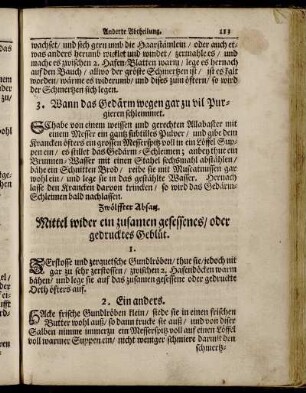 Anderte Abtheilung. 213
wachset / und sich gern umb die Haarstämlein / oder auch et-
was anders herumb wicklet und windet / zermahle es / und
mache es zwischen 2. Hafen-Blatten warm / lege es hernach
auf den Bauch / allwo der gröste Schmertzen ist / ist es kalt
worden / wärme es widerumb / und dises zum öftern / so wird
der Schmertzen sich legen.
3. Wann das Gedärm wegen gar zu vil Pur-
gieren schleimmet.
SChabe von einem weissen und gerechten Allabaster mit
einem Messer ein gantz subtiles Pulver / und gibe dem
Krancken öfters ein grosser Messerspitz voll in ein Löffel Sup-
pen ein / es stillet das Gedärm-Schleimen; absonderlich thue ein
Brunnen-Wasser mit einen Stahel sechsmahl abstählen /
bähe ein Schnitten Brod / reibe sie mit Muscatnussen gar
wohl ein / und lege sie in das gestählte Wasser. Hernach
lasse den Krancken darvon trincken / so wird das Gedärm-
Schleimen bald nachlassen.
Zwölffter Absatz.
Mittel wider ein zusamen gesessenes / oder
gedrucktes Geblüt.
1.
ZErstosse und zerquetsche Gundlröben / thue sie jedoch nit
gar zu sehr zerstossen / zwischen 2. Hafendöcken warm
bähen / und lege sie auf das zusamen gesessene oder gedruckte
Orth öfters auf.
2. Ein anders.
HAcke frische Gundlröben klein / siede sie in einen frischen
Butter wohl auß / so dann trucke sie auß / und von diser
Salben nimme immerzu ein Messerspitz voll auf einen Löffel
voll warmer Suppen ein / nicht weniger schmiere darmit den
schmertz-